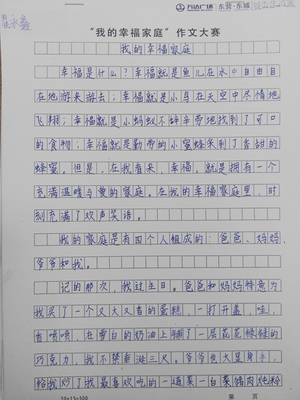 万达广场 东营·东城
“我的幸福家庭”作文大赛
我的幸福家庭
幸福是什么?幸福就是鱼儿在水中自由自
在地游来游去;幸福就是小鸟在天空中尽情地
飞翔;幸福就是小蚂蚁不辞辛劳地找到了可口
的食物;幸福就是勤劳的小蜜蜂采到了香甜的
蜂蜜。但是,在我看来,幸福,就是拥有一个
充满温暖与爱的家庭。在我的幸福家庭里,时
刻充满了欢声笑语。
我的家庭是有四个人组成的:爸爸、妈妈、
爷爷和我。
记的那次,我过生日。爸爸和妈妈特意为
我买了一个又大又香的蛋糕,一打开盖,哇,
香喷喷,在雪白的奶油上
巧克力,我不禁垂涎三尺。爷爷也大显身手,
给我炒了我最喜欢吃的一道菜一白菜猪肉炖粉
20×15=300
第 页